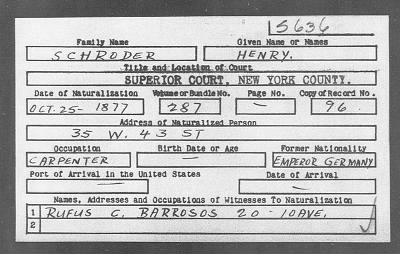 S636
Family Name Given Name or Names
SCHRODER HENRY.
Title and Location of Court
SUPERIOR COURT, NEW YORK COUNTY.
Date of Naturalization Volume or Bundle No. Page No. Copy of Record No.
OCT. 25- 1877 287 — 96
Address of Naturalized Person
35 W. 43 ST
Occupation Birth Date or Age Former Nationality
CARPENTER — EMPEROR GERMANY
Port of Arrival in the United States Date of Arrival
— —
Names, Addresses and Occupations of Witnesses To Naturalization
1 RUFUS C. BARROSOS 20-10AVE.
2